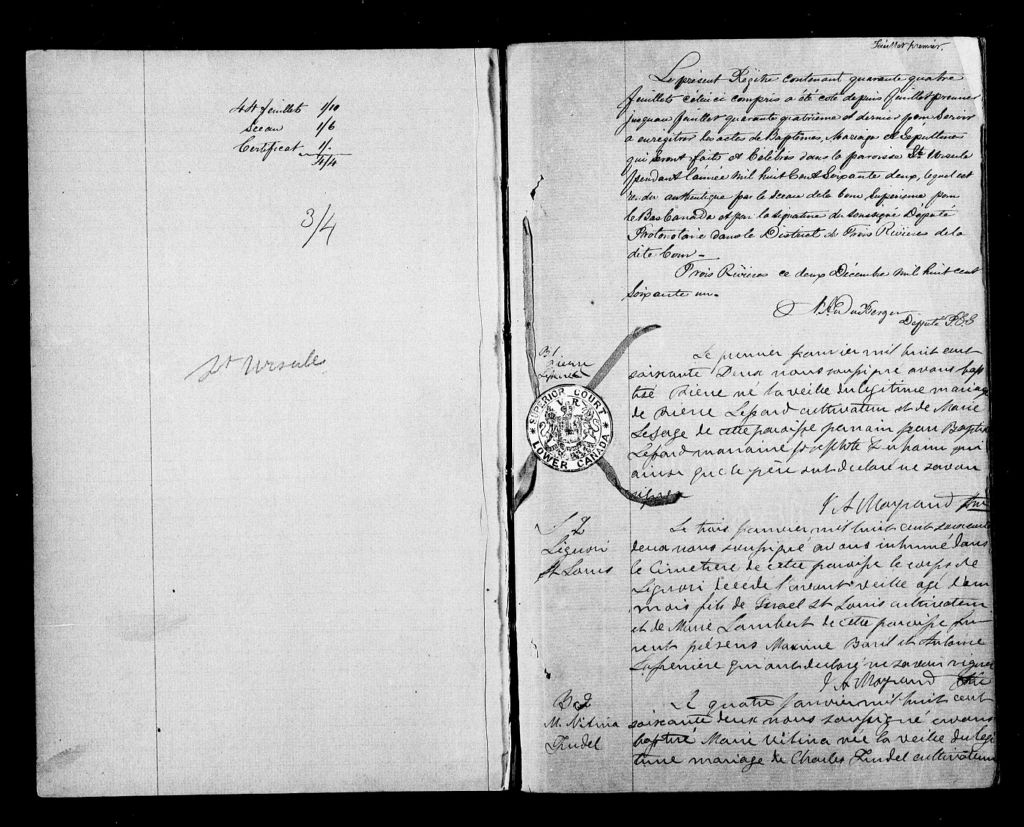 44 feuillets 1/10
Sceau 1/6
Certificat 1/-
4/4
3/4
St Ursule
Feuillet premier.
Le présent Régître contenant quarante quatre
feuillets célui ci compris a été coté depuis feuillet premier
jusquau feuillet quarante quatrieme et dernier pour servir
a enregitrer les actes de Baptèmes, Mariage et Sepultures
qui seront faits et Célébrés dans la paroisse Ste Ursule
pendant l'année Mil huit Cent Soixante deux, lequel est
rendu authentique par le Sceau de la Cour Supérieure pour
le Bas Canada et par la signature du soussigné Député
Protonotaire dans le District de Trois Rivieres de la
dite Cour—
Trois Rivières ce deux Décembre Mil huit cent
Soixante un.
Député P.C.S
B 1
Pierre
SUPERIOR COURT
V R
LOWER CANADA
Le premier janvier mil huit cent
soixante Deux nous soussigné avons bap
tisé Pierre né la veille du légitime mariage
de Pierre Lepard cultivateur et de Marie
Lesage de cette paroisse parrain Jean Baptiste
Lepard marraine qui
ainsi que le père ont declaré ne savoir
signer
J A Mayrand Ptre
S 2
Liguori
St Louis
Le trois janvier mil huit cent soixante
deux nous soussigné avons inhumé dans
le Cimetiere de cette paroisse le corps de
Liguori decedé l'avant veille agé d'un
mois fils de Israel St Louis cultivateur
et de Marie Lambert de cette paroisse Fu
rent présens Maxime Baril et Antoine
Lafrenière qui ont declaré ne savoir signer
J A Mayrand Ptre
B 2
M. Vitina
Trudel
Le quatre Janvier mil huit cent
soixante deux nous soussigné avons
baptisé Marie Vitina née la veille du légi
time mariage de Charles Trudel cultivateur